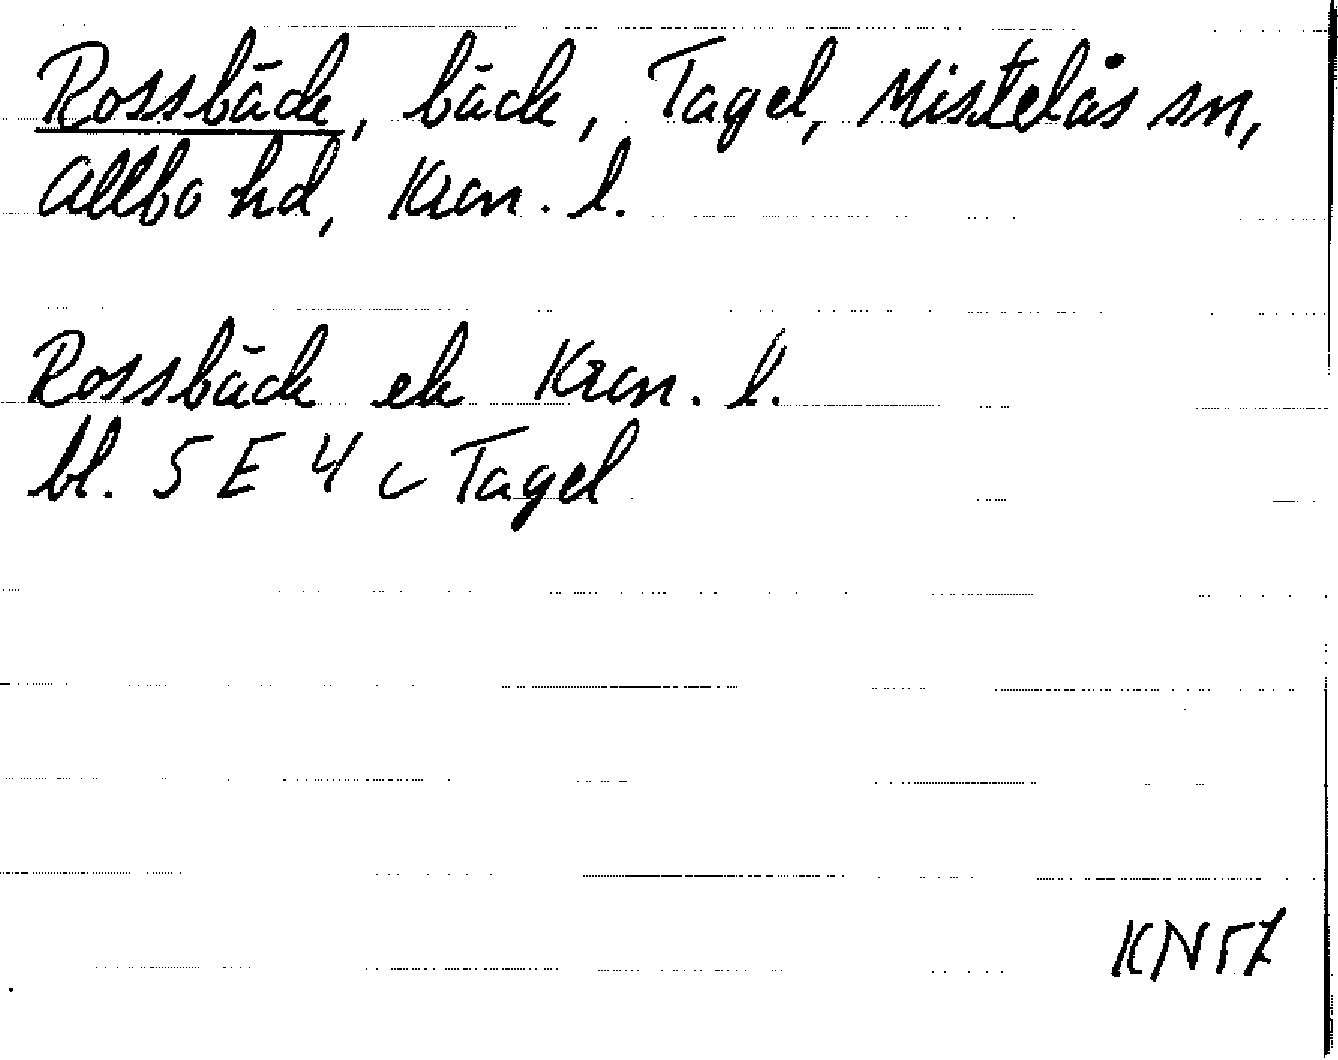 Rossbäck, bäck, Tagel, Mistelås sn,
Allbo hd, Kron. l.
Rossbäck ek Kron. l.
bl. 5 E 4 c Tagel